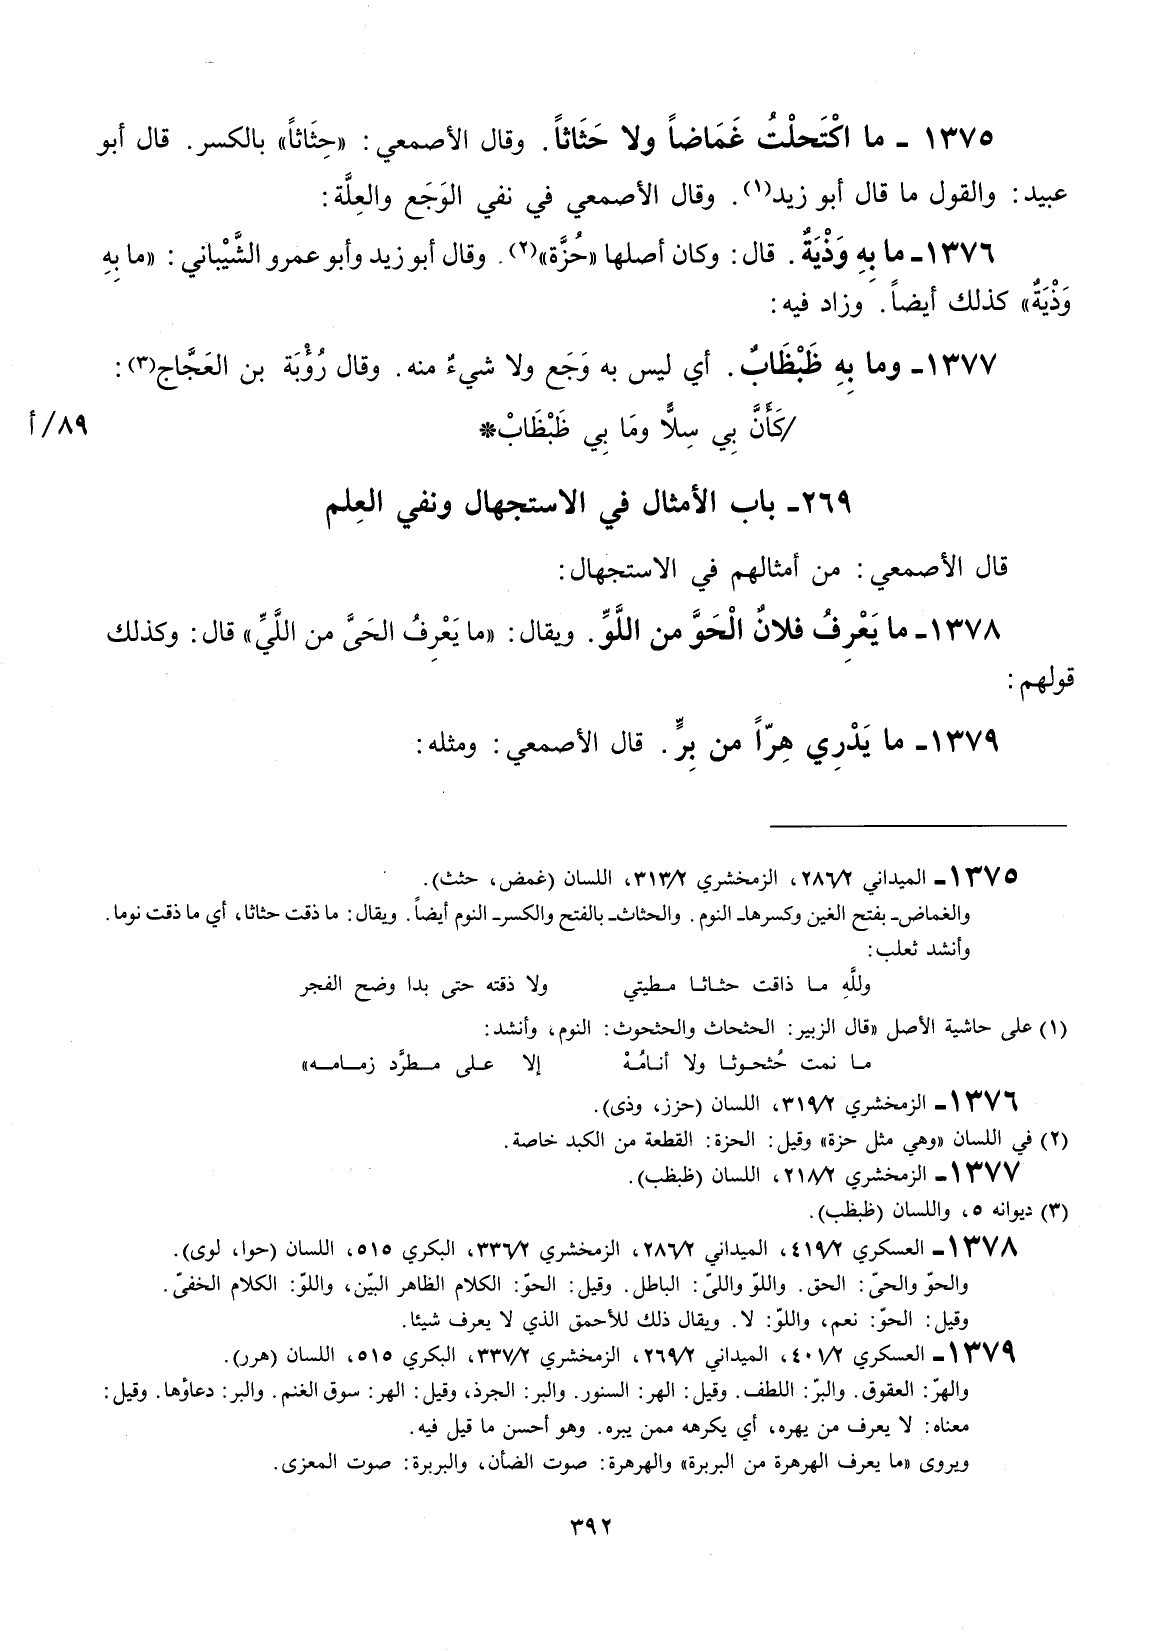 ١٣٧٥ ـ ما اكْتَحلْتُ غَمَاضاً ولا حَثَاثاً. وقال الأصمعي: «حِثَاثاً» بالكسر. قال أبو
عبيد: والقول ما قال أبو زيد(١). وقال الأصمعي في نفي الوَجَع والعِلَّة:
١٣٧٦ـ ما بِهِ وَذْيَةٌ. قال: وكان أصلها «حُزَّة»(٢). وقال أبو زيد وأبو عمرو الشَّيْباني: «ما بِهِ
وَذْيَةٌ» كذلك أيضاً. وزاد فيه:
١٣٧٧ـ وما بِهِ ظَبْظَابٌ. أي ليس به وَجَع ولا شيءٌ منه. وقال رُؤْبَة بن العَجَّاج(٣):
/كَأَنَّ بِي سِلًّا ومَا بِي ظَبْظَابْ* ٨٩/أ
٢٦٩ـ باب الأمثال في الاستجهال ونفي العِلم
قال الأصمعي: من أمثالهم في الاستجهال:
١٣٧٨ـ ما يَعْرِفُ فلانٌ الْحَوَّ من اللَّوِّ. ويقال: «ما يَعْرِفُ الحَيَّ من اللَّيِّ» قال: وكذلك
قولهم:
١٣٧٩ـ ما يَدْرِي هِرّاً من بِرٍّ. قال الأصمعي: ومثله:
١٣٧٥ـ الميداني ٢٨٦/٢، الزمخشري ٣١٣/٢، اللسان (غمض، حثث).
والغماض ـ بفتح الغين وكسرها ـ النوم. والحثاث ـ بالفتح والكسر ـ النوم أيضاً. ويقال: ما ذقت حثاثا، أي ما ذقت نوما.
وأنشد ثعلب:
وللَّهِ ما ذاقت حثاثا مطيتي ولا ذقته حتى بدا وضح الفجر
(١) على حاشية الأصل «قال الزبير: الحثحاث والحثحوث: النوم، وأنشد:
ما نمت حُثحوثا ولا أنامُهْ إلا على مطرَّد زمامه»
١٣٧٦ـ الزمخشري ٣١٩/٢، اللسان (حزز، وذى).
(٢) في اللسان «وهي مثل حزة» وقيل: الحزة: القطعة من الكبد خاصة.
١٣٧٧ـ الزمخشري ٢١٨/٢، اللسان (ظبظب).
(٣) ديوانه ٥، واللسان (ظبظب).
١٣٧٨ـ العسكري ٤١٩/٢، الميداني ٢٨٦/٢، الزمخشري ٣٣٦/٢، البكري ٥١٥، اللسان (حوا، لوى).
والحوّ والحيّ: الحق. واللو والليّ: الباطل. وقيل: الحوّ: الكلام الظاهر البيّن، واللوّ: الكلام الخفيّ.
وقيل: الحوّ: نعم، واللوّ: لا. ويقال ذلك للأحمق الذي لا يعرف شيئا.
١٣٧٩ـ العسكري ٤٠١/٢، الميداني ٢٦٩/٢، الزمخشري ٣٣٧/٢، البكري ٥١٥، اللسان (هرر).
والهرّ: العقوق. والبرّ: اللطف. وقيل: الهر: السنور. والبر: الجرذ، وقيل: الهر: سوق الغنم. والبر: دعاؤها. وقيل:
معناه: لا يعرف من يهره، أي يكرهه ممن يبره. وهو أحسن ما قيل فيه.
ويروى «ما يعرف الهرهرة من البربرة» والهرهرة: صوت الضأن، والبربرة: صوت المعزى.
٣٩٢